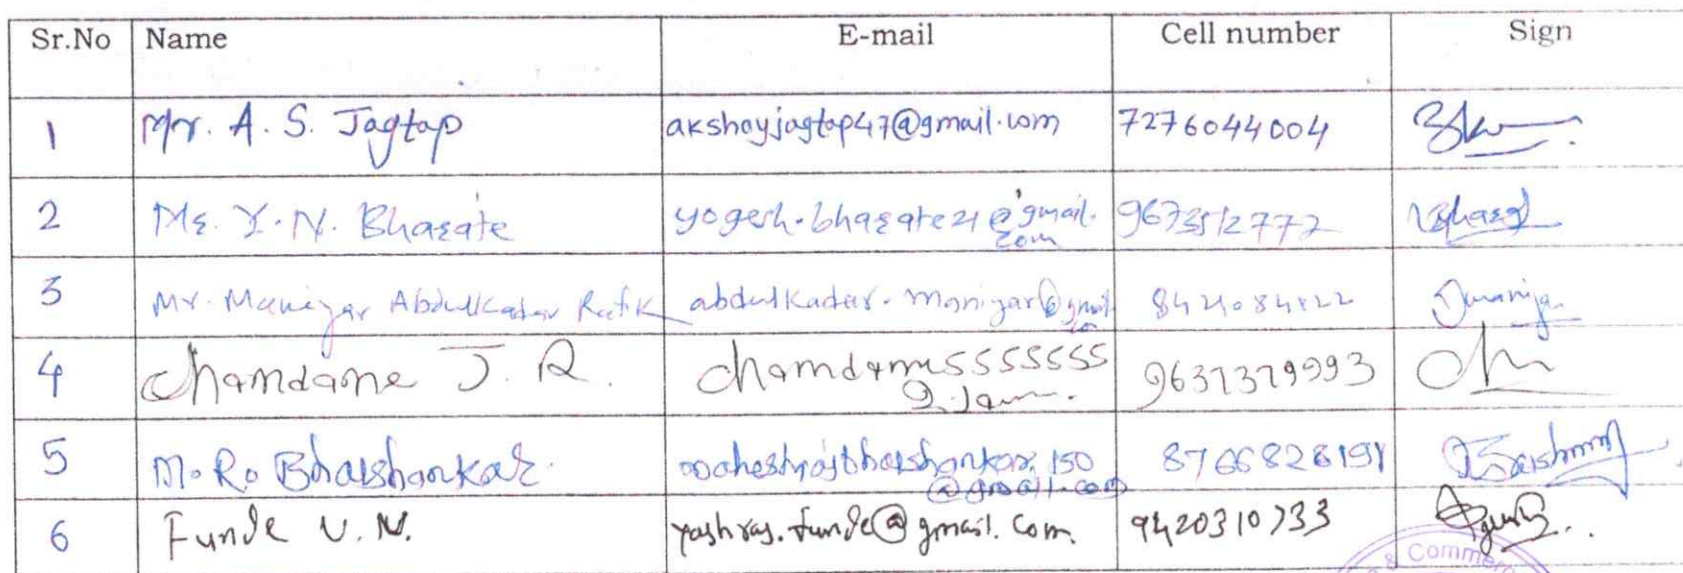 Sr.No Name E-mail Cell number Sign
1 Mr. A. S. Jagtap akshayjagtap47@gmail.com 7276044004
2 Mr. Y. N. Bharate yogesh.bharate21@gmail.
com 9673512772
3 Mr. Maniyar Abdulkadar Rafik abdulkadar.maniyar@gmail
4 Chamdane J. R. 9637379993
5 M. R. Bharshankar maheshrajbharshankar150
@gmail.com 8766828191
6 Funde V. N. yashraj.funde@gmail.com. 9420310733
& Commerce